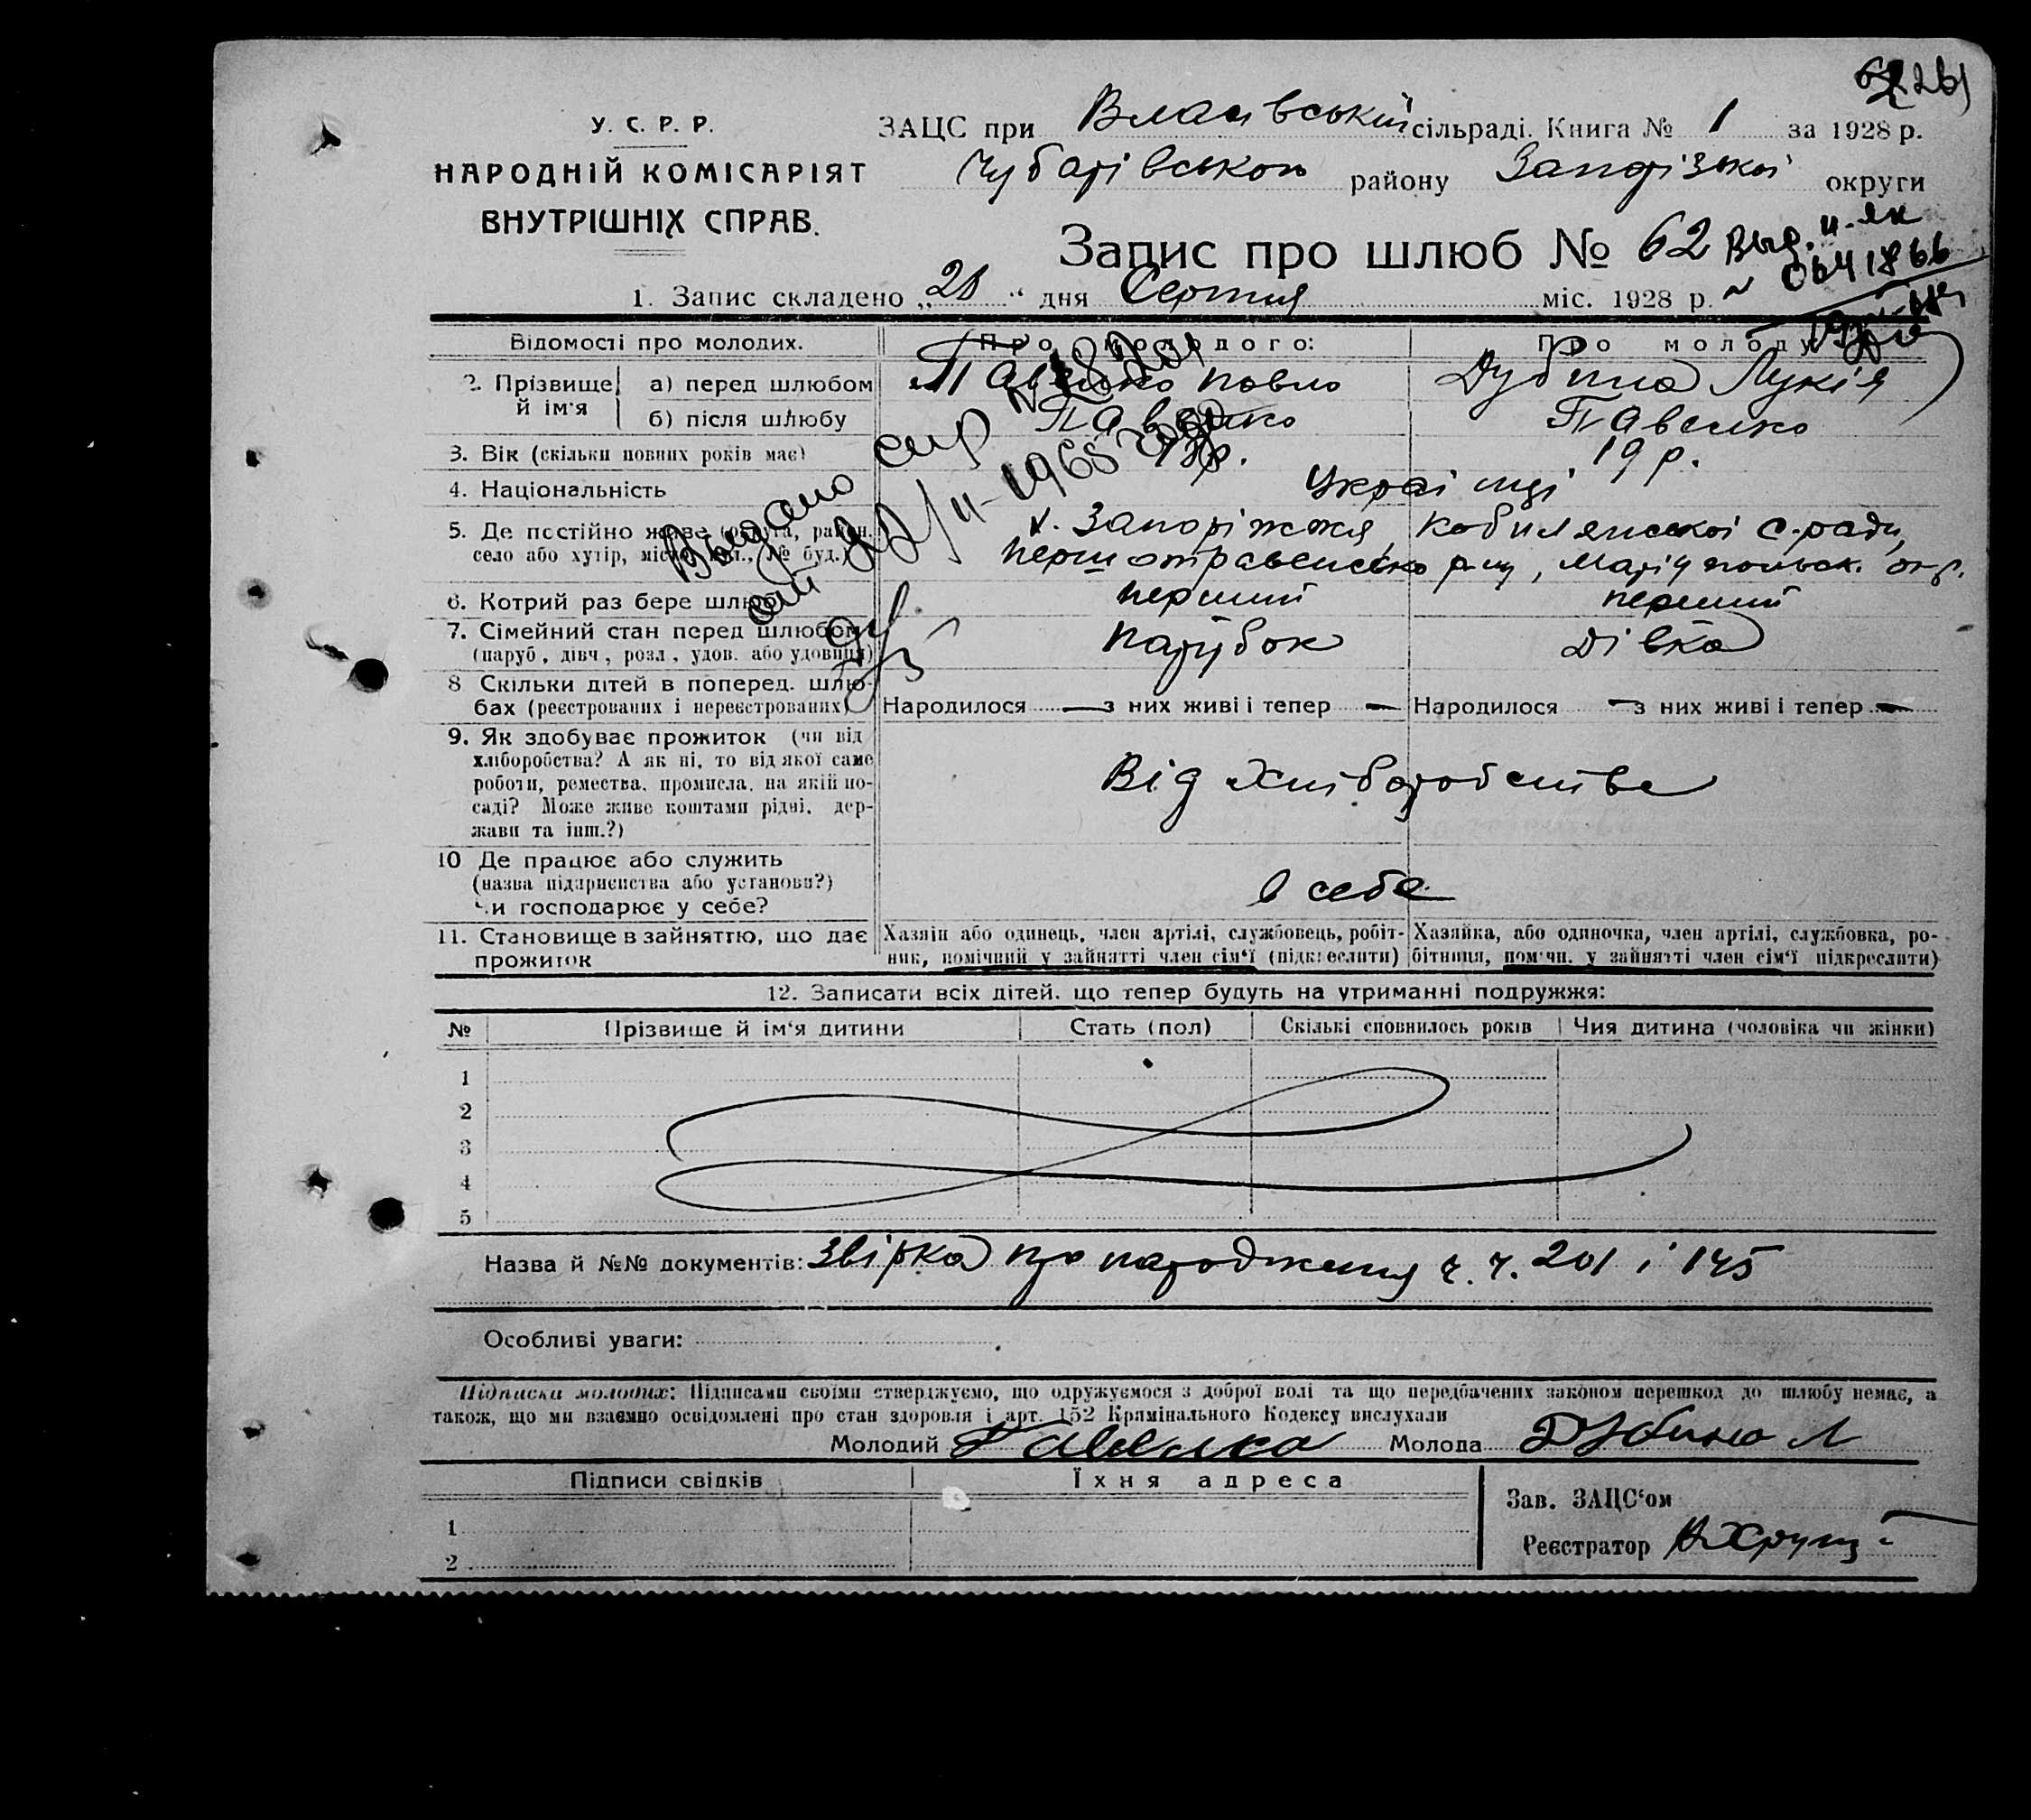 У. С. Р. Р.
НАРОДНІЙ КОМІСАРІЯТ
ВНУТРІШНІХ СПРАВ.
ЗАЦС при Власівській сільраді. Книга № 1 за 1928 р.
Чубарівського району Запорізької округи
Запис про шлюб № 62
1. Запис складено „28“ дня Серпня міс. 1928 р.
Відомості про молодих. Про молодого: Про молоду
2. Прізвище й ім'я а) перед шлюбом Павленко Павло Дубина Лукія
б) після шлюбу Павленко Павленко
3. Вік (скільки повних років має) 19 р.
4. Національність Українці
5. Де постійно живе (округа, район, село або хутір, місто, вул., № буд.) х. Запоріжжя, Кобилянської с.ради,
Першотравенсько р-ну, Маріупольск. окр.
6. Котрий раз бере шлюб перший перший
7. Сімейний стан перед шлюбом Парубок Дівка
(паруб., дівч., розл., удов. або удовиця)
8 Скільки дітей в поперед. шлюбах (реєстрованих і нереєстрованих) Народилося — з них живі і тепер — Народилося — з них живі і тепер —
9. Як здобуває прожиток (чи від
хліборобства? А як ні, то від якої саме
роботи, ремества, промисла, на якій по-
саді? Може живе коштами рідні, дер-
жави та інш.?)
Від хліборобства
10 Де працює або служить
(назва підприємства або установи?)
Чи господарює у себе?
в себе
11. Становище в зайняттю, що дає прожиток
Хазяїн або одинець, член артілі, службовець, робіт-
ник, помічний у зайнятті член сім'ї (підкреслити)
Хазяйка, або одиночка, член артілі, службовка, ро-
бітниця, помічн. у зайнятті член сім'ї підкреслити)
12. Записати всіх дітей, що тепер будуть на утриманні подружжя:
№ Прізвище й ім'я дитини Стать (пол) Скількі сповнилось років Чия дитина (чоловіка чи жінки)
1
2
3
4
5
Назва й №№ документів: Звірка про народження ч. ч. 201 і 145
Особливі уваги:
Підписки молодих: Підписами своїми стверджуємо, що одружуємося з доброї волі та що передбачених законом перешкод до шлюбу немає, а
також, що ми взаємно освідомлені про стан здоровля і арт. 152 Крямінального Кодексу вислухали
Молодий Павленко Молода Дубина Л
Підписи свідків Їхня адреса
1
2
Зав. ЗАЦС'ом
Реєстратор
Выдано